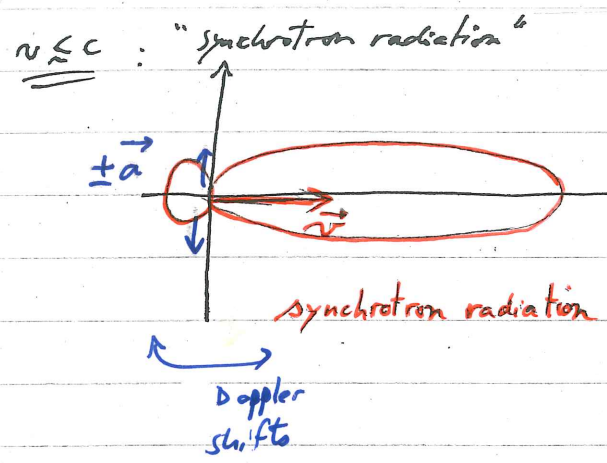 v ≲ c : "synchrotron radiation"
± a⃗
v⃗
synchrotron radiation
Doppler
shifts